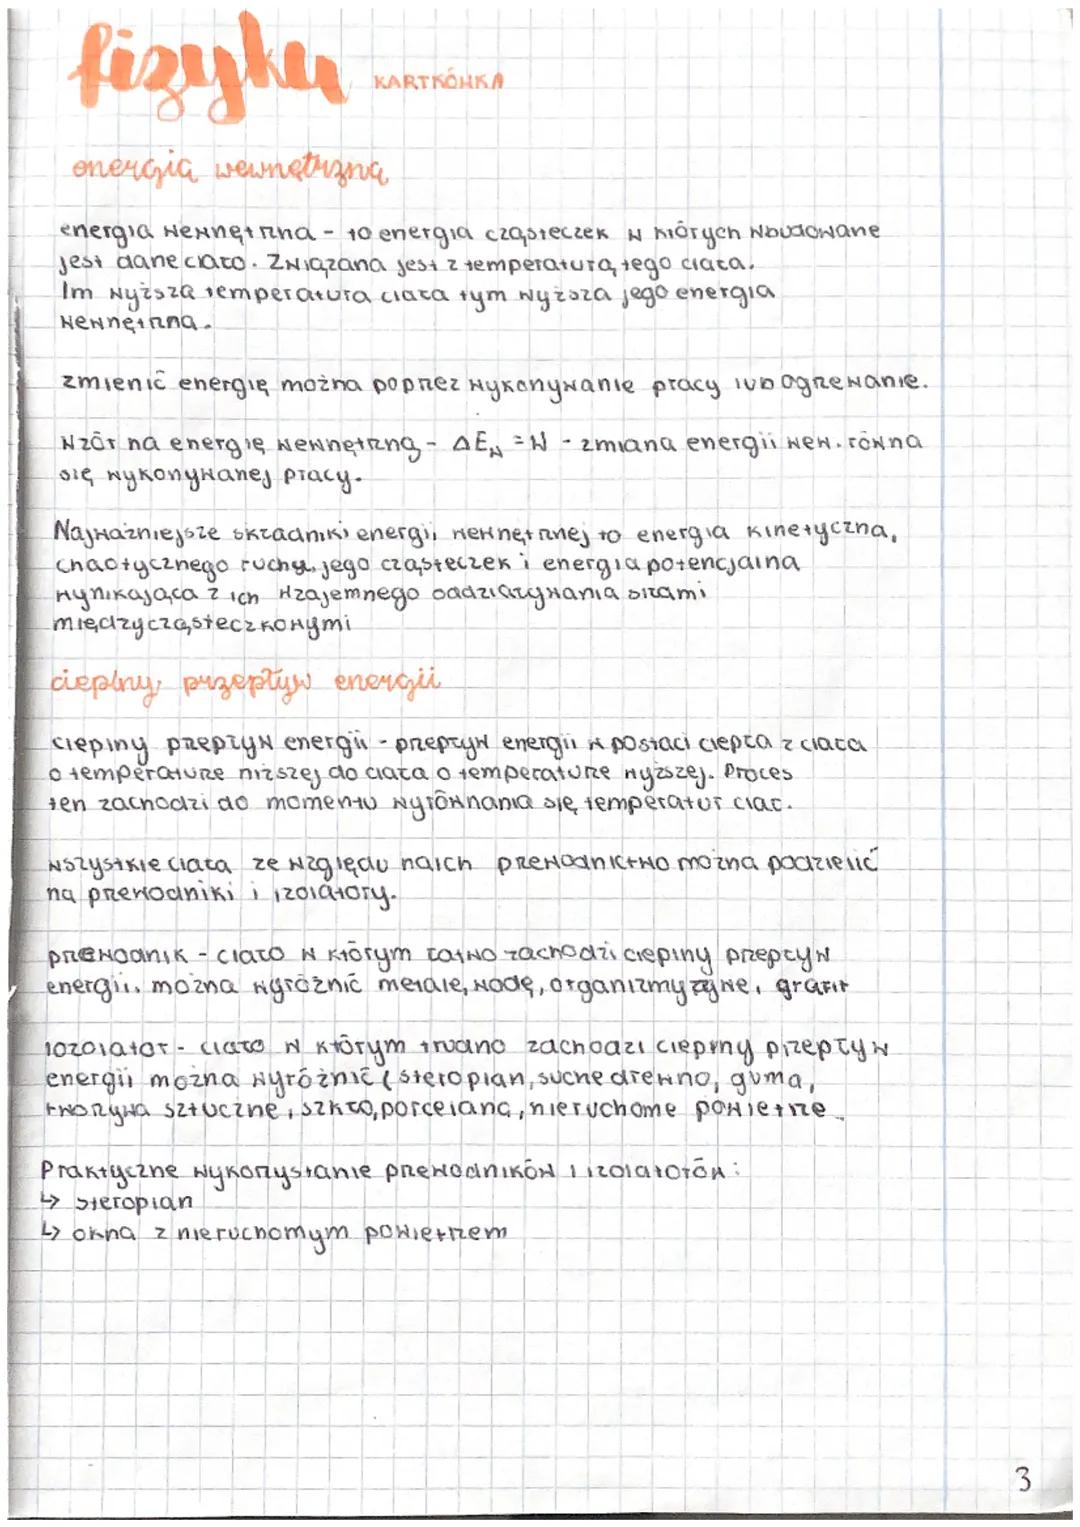 fizyka KARTKÓWKA
energia wewnętrzna
energia wewnętrzna - to energia cząsteczek w których wbudowane
jest dane ciało. Związana jest z temperaturą tego ciała.
Im wyższa temperatura ciała tym wyższa jego energia
wewnętrzna.
zmienić energię można poprzez wykonywanie pracy lub ogrzewanie.
Wzór na energię wewnętrzną - ΔEw = W - zmiana energii wew. równa
się wykonywanej pracy.
Najważniejsze składniki energii wewnętrznej to energia kinetyczna,
chaotycznego ruchu jego cząsteczek i energia potencjalna
wynikająca z ich wzajemnego oddziaływania siłami
międzycząsteczkowymi
cieplny przepływ energii
cieplny przepływ energii - przepływ energii w postaci ciepła z ciała
o temperaturze niższej do ciała o temperaturze wyższej. Proces
ten zachodzi do momentu wyrównania się temperatur ciał.
wszystkie ciała ze względu na ich przewodnictwo można podzielić
na przewodniki i izolatory.
przewodnik - ciało w którym łatwo zachodzi cieplny przepływ
energii. można wyróżnić metale, wodę, organizmy żywe, grafit
iozolator - ciało w którym trudno zachodzi cieplny przepływ
energii można wyróżnić (steropian, suche drewno, guma,
tworzywa sztuczne, szkło, porcelana, nieruchome powietrze
Praktyczne wykorzystanie przewodników i izolatorów:
↳ steropian
↳ okna z nieruchomym powietrzem
3